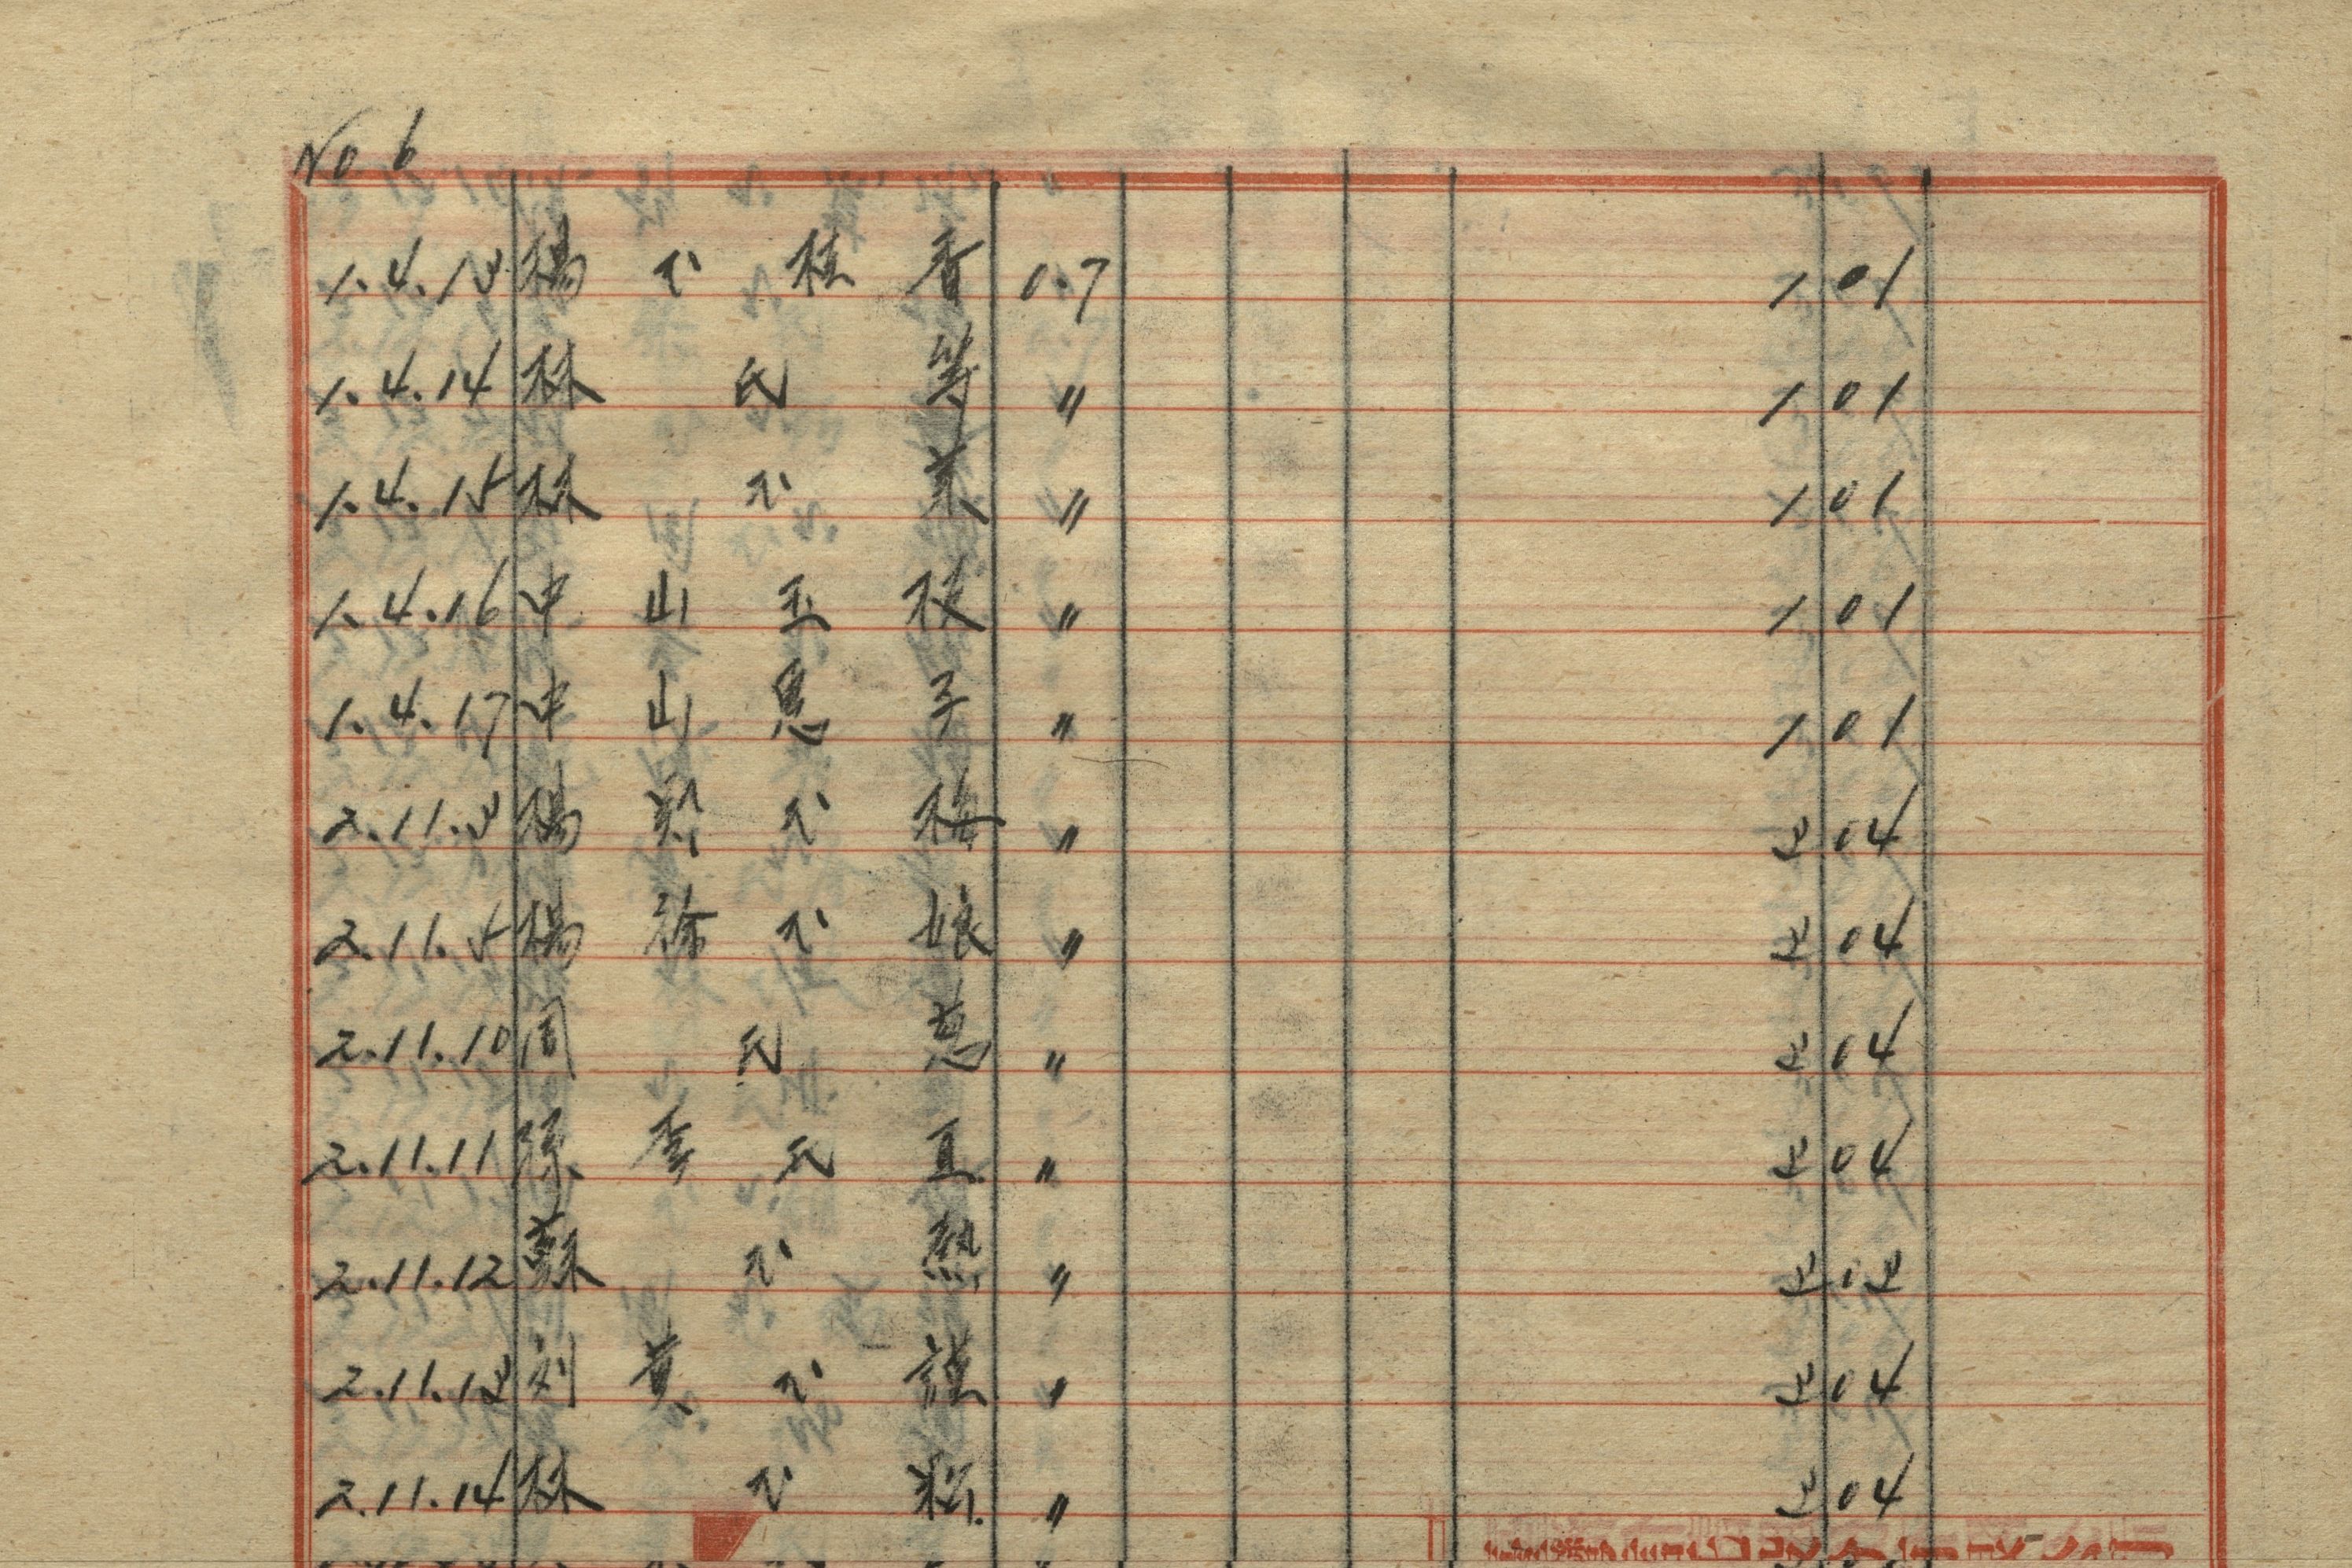 No 6
1.4.13 楊氏桂香 0.7 1 01
1.4.14 林氏等 〃 1 01
1.4.15 林氏葉 〃 1 01
1.4.16 中山玉枝 〃 1 01
1.4.17 中山惠子 〃 1 01
2.11.3 楊鄭氏梅 〃 3 04
2.11.5 楊徐氏娘 〃 3 04
2.11.10 周氏惠 〃 3 04
2.11.11 孫李氏直 〃 3 04
2.11.12 蘇氏熱 〃 3 03
2.11.13 劉黃氏謹 〃 3 04
2.11.14 林氏 〃 3 04